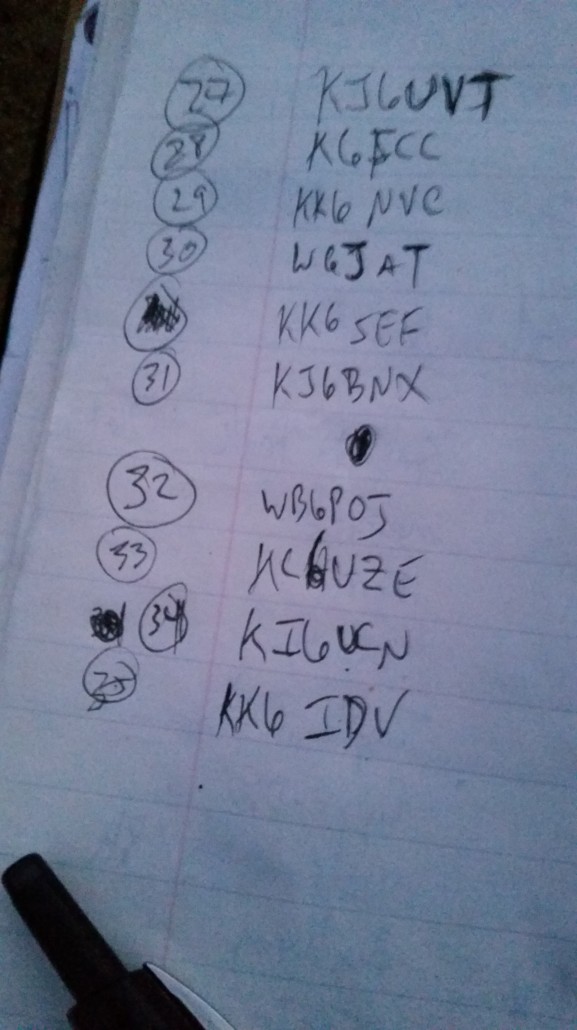 27 KJ6UVT
28 K6ECC
29 KK6 NVC
30 W6JAT
KK6 SEF
31 KJ6BNX
32 WB6POJ
33 KC6UZE
34 KI6UCN
35 KK6 IDV